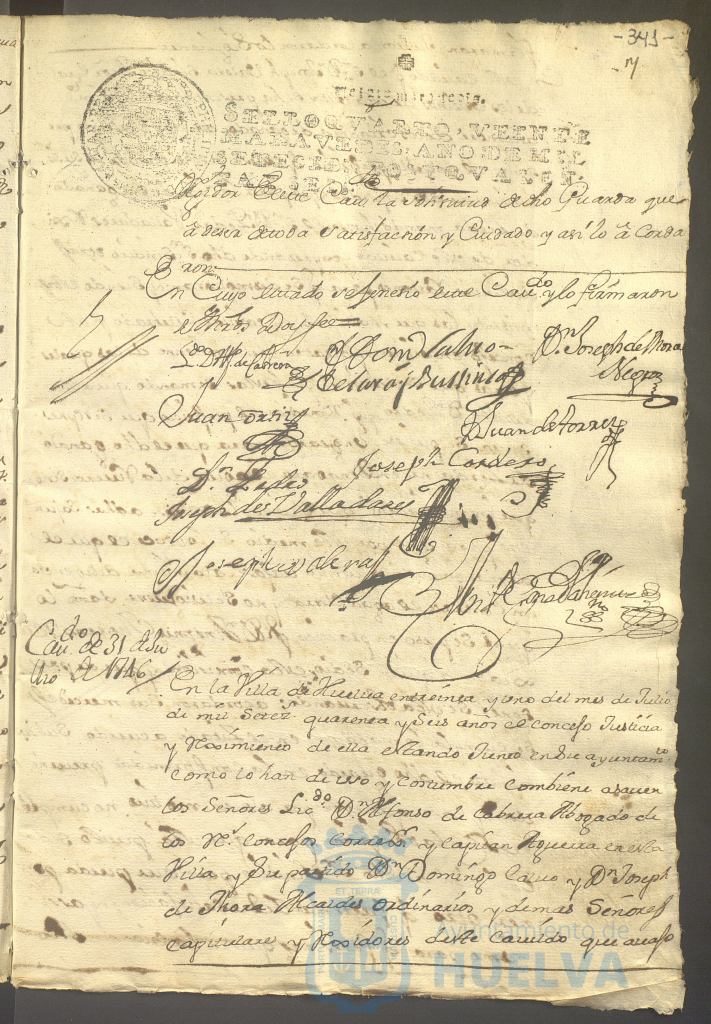 -341-
Veinte maravedis.
SELLO QUARTO, VEINTE
MARAVEDIS, AÑO DE MIL
SETECIENTOS Y QUAREN
TA Y SEIS.
Rexidor deste Cavildo la de dho Guarda que
a de ser de toda Satisfaccion y Cuidado y asi lo acorda
ron.
En Cuyo estado se fenecio este Cavdo. y lo firmaron
sus doy fee
Ldo. Dn. Alf. de Cabrera
Dn. Joseph de Mora
Negro
Juan Ortiz
Juan de torres
Joseph Cordero
Dn. Pedro
Joseph de Valladares
Cavdo. de 31 de Ju
lio de 1746
En la Villa de Huelva en treinta y uno del mes de Julio
de mil Setez. quarenta y Seis años el concejo Justicia
y Reximiento de ella estando Junto en su ayuntamto.
como lo han de uso y costumbre combiene a saver
los Señores Licdo. Dn. Alfonso de Cabrera Abogado de
los Rs. concejos Correxor. y Capitan Aguerra en esta
Villa y Su partido Dn. Domingo Calvo y Dn. Joseph
de Mora Alcaldes ordinarios y demas Señores
capitulares y Rexidores deste Cavildo que avajo
Ayuntamiento de
HUELVA